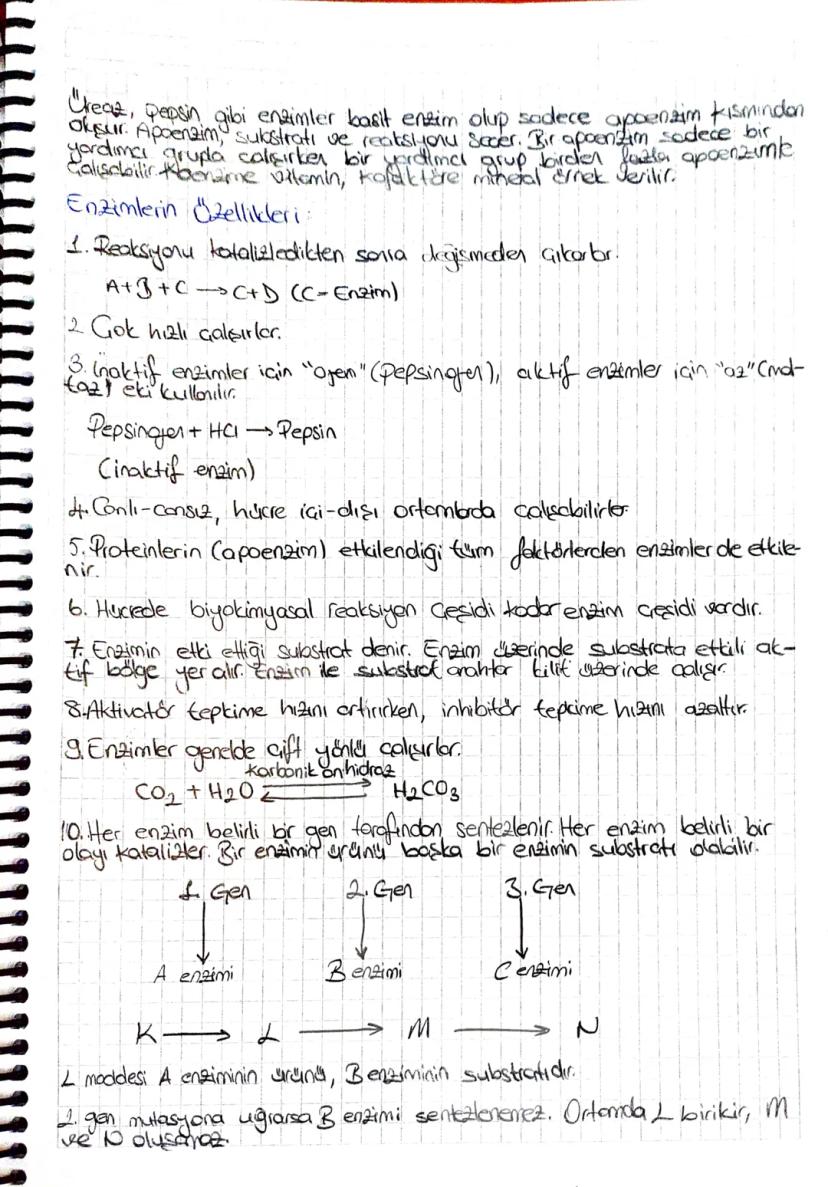 Üreaz, pepsin gibi enzimler basit enzim olup sadece apoenzim kısmından
oluşur. Apoenzim, substratı ve reaksiyonu seçer. Bir apoenzim sadece bir
yardımcı grupla çalışırken bir yardımcı grup birden fazla apoenzimle
çalışabilir. Koenzime vitamin, kofaktöre mineral örnek verilir.
Enzimlerin Özellikleri:
1. Reaksiyonu katalizledikten sonra değişmeden çıkarlar.
A+B+C → C+D (C-Enzim)
2. Çok hızlı çalışırlar.
3. İnaktif enzimler için "ojen" (Pepsinojen), aktif enzimler için "az" (mal-
taz) eki kullanılır.
Pepsinojen + HCl → Pepsin
(inaktif enzim)
4. Canlı-cansız, hücre içi-dışı ortamlarda çalışabilirler.
5. Proteinlerin (apoenzim) etkilendiği tüm faktörlerden enzimler de etkile-
nir.
6. Hücrede biyokimyasal reaksiyon çeşidi kadar enzim çeşidi vardır.
7. Enzimin etki ettiği substrat denir. Enzim üzerinde substrata etkili ak-
tif bölge yer alır. Enzim ile substrat anahtar kilit üzerinde çalışır.
8. Aktivatör tepkime hızını artırırken, inhibitör tepkime hızını azaltır.
9. Enzimler genelde çift yönlü çalışırlar.
karbonik anhidraz
CO₂ + H₂O ⇌ H₂CO₃
10. Her enzim belirli bir gen tarafından sentezlenir. Her enzim belirli bir
olayı katalizler. Bir enzimin ürünü başka bir enzimin substratı olabilir.
1. Gen 2. Gen 3. Gen
A enzimi B enzimi C enzimi
K → L → M → N
L maddesi A enziminin ürünü, B enziminin substratıdır.
2. gen mutasyona uğrarsa B enzimi sentezlenemez. Ortamda L birikir, M
ve N oluşamaz.